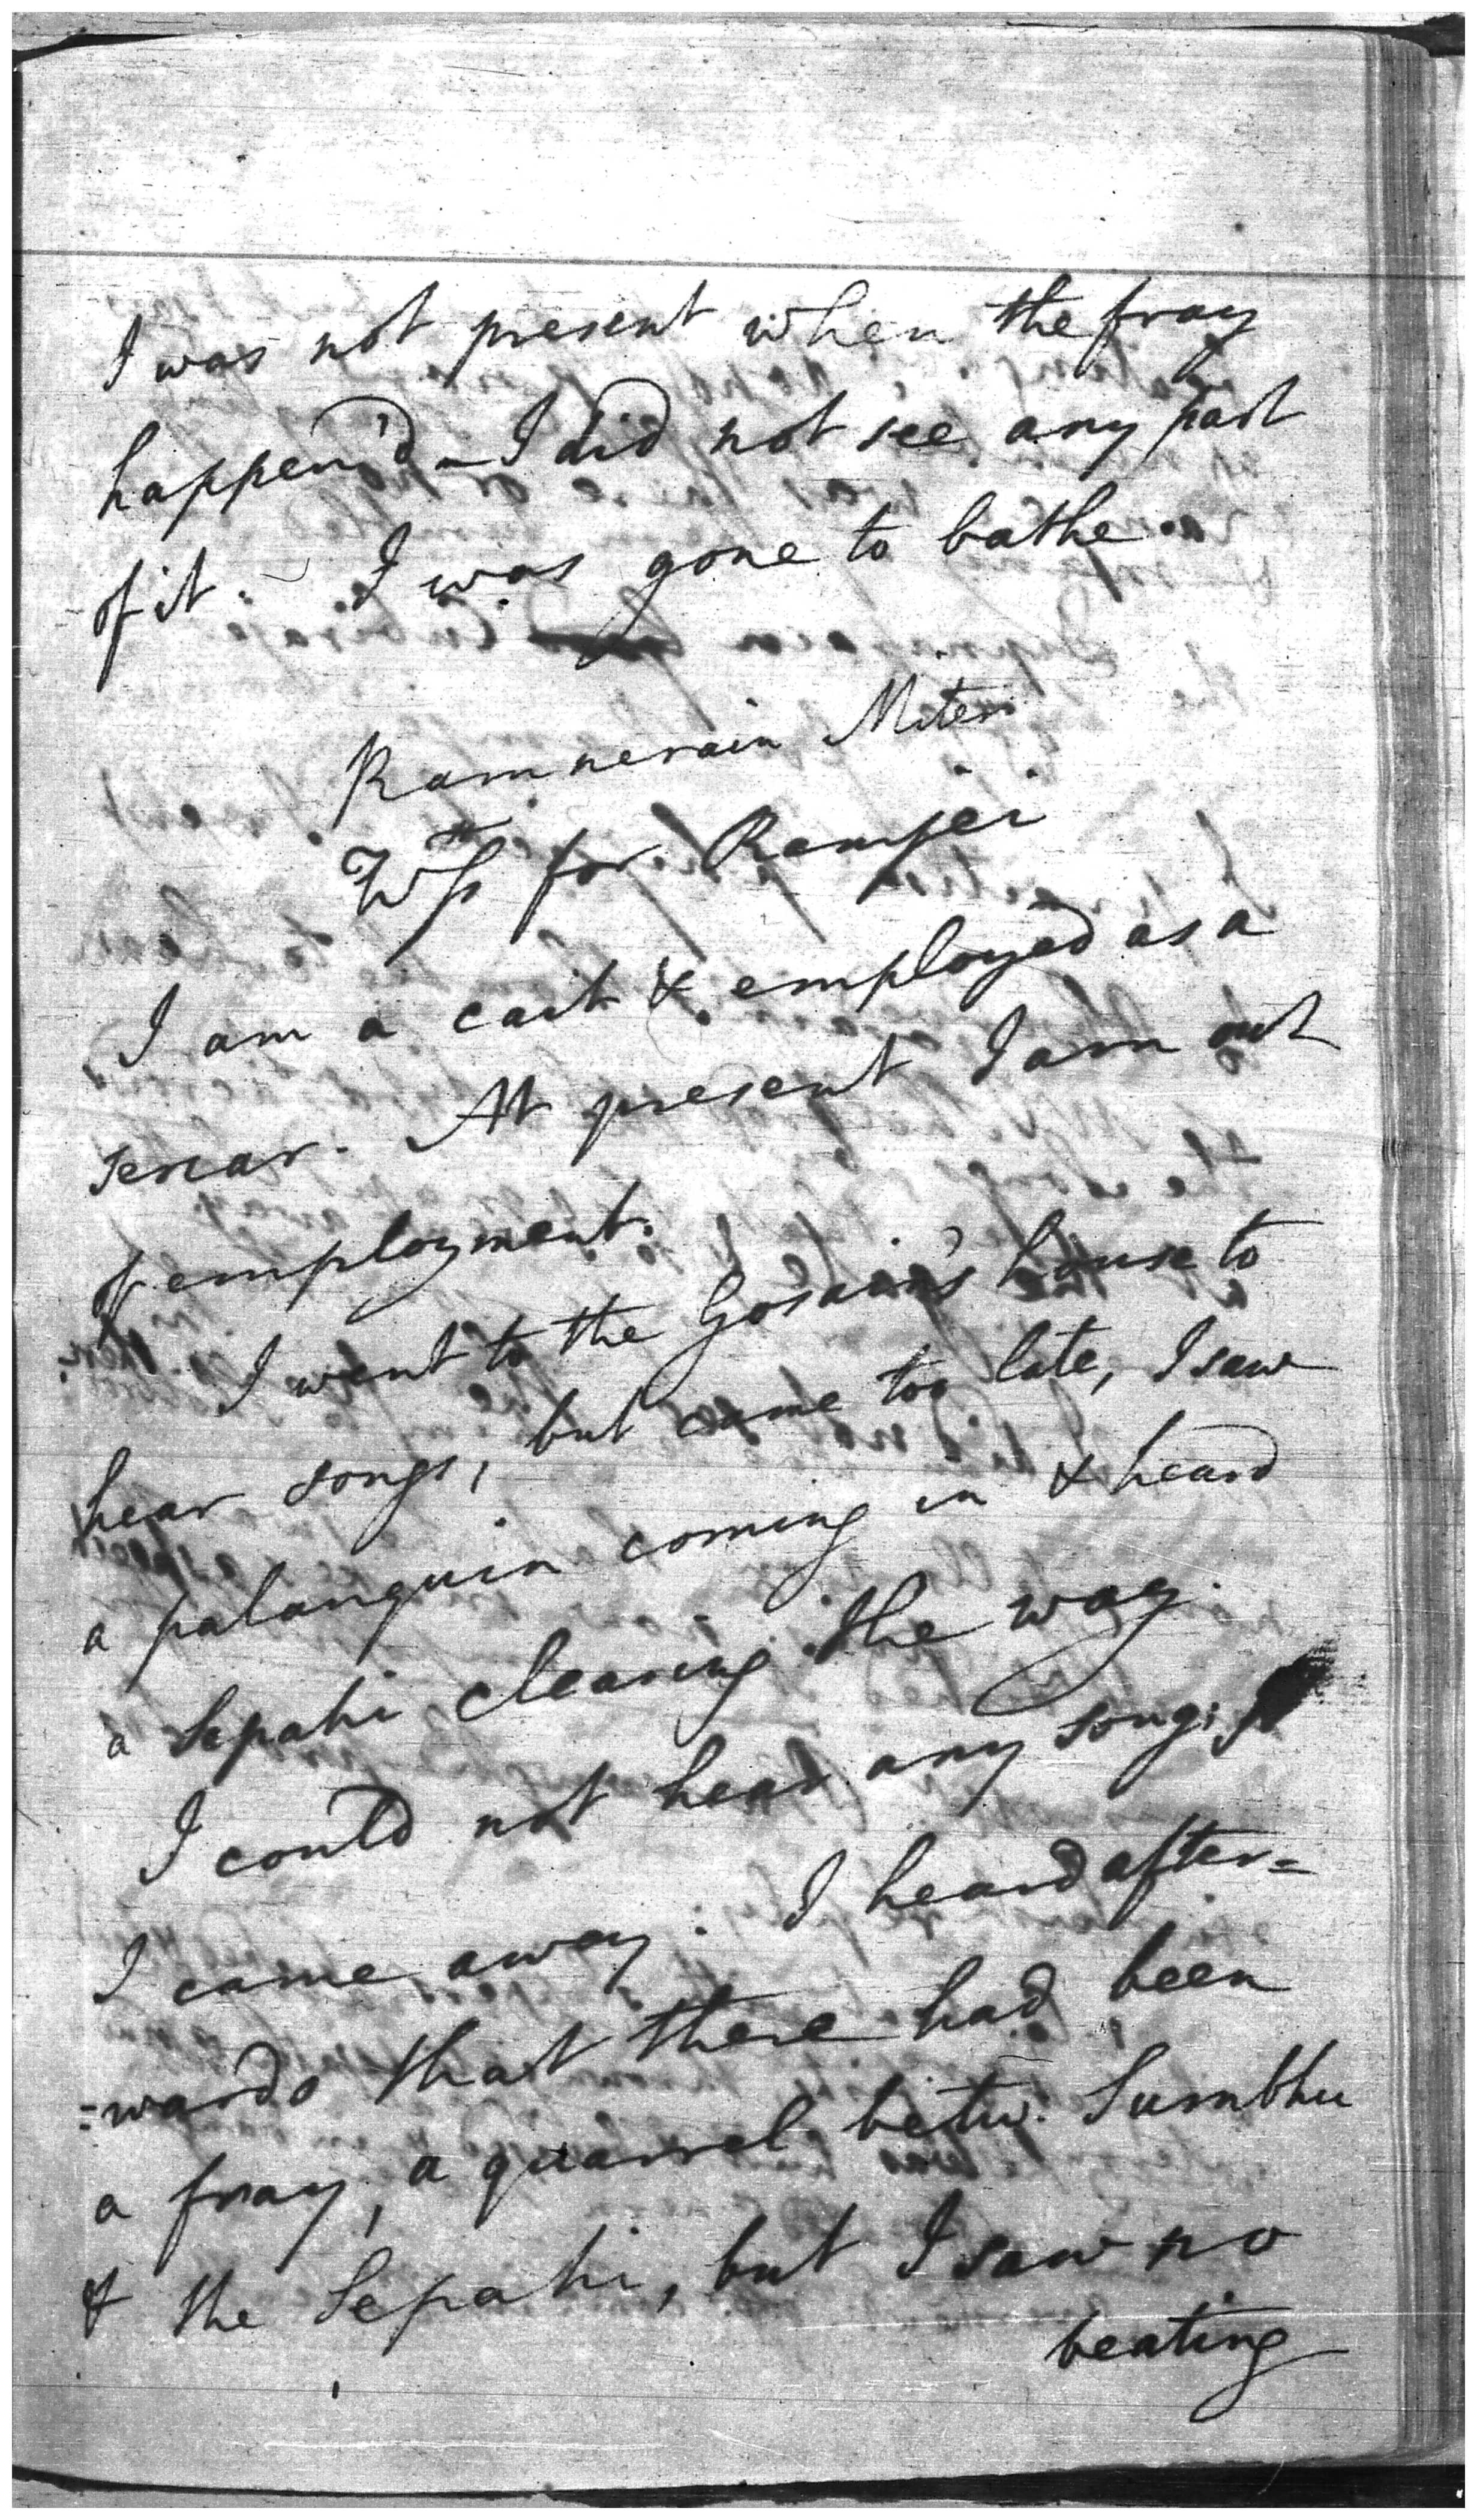 I was not present when the fray
happen'd – I did not see any part
of it. – I was gone to bathe.
Ramnerain Miter
Wss for Ramjei
I am a cait & employed as a
sercar. At present I am out
of employment.
I went to the Gosain's house to
hear songs, but came too late, I saw
a palanquin coming in & heard
a Sepahi clearing the way.
I could not hear any song;
I came away. I heard after=
=wards that there had been
a fray, a quarrel betw. Sumbhu
& the Sepahi, but I saw no
beating